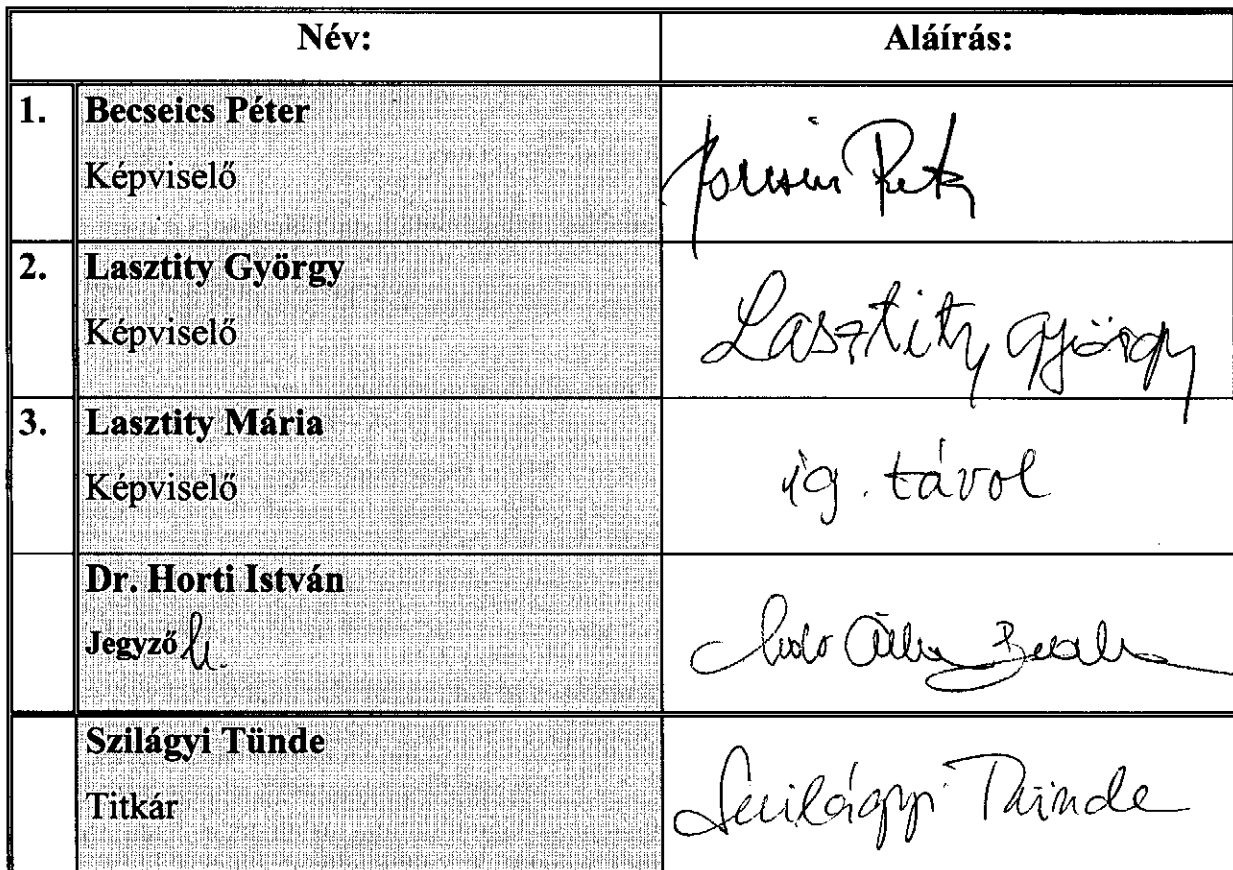 Név: Aláírás:
1. Becseics Péter
Képviselő
2. Lasztity György
Képviselő
Lasztity György
3. Lasztity Mária
Képviselő
ig. távol
Dr. Horti István
Jegyző h.
Szilágyi Tünde
Titkár
Szilágyi Tünde